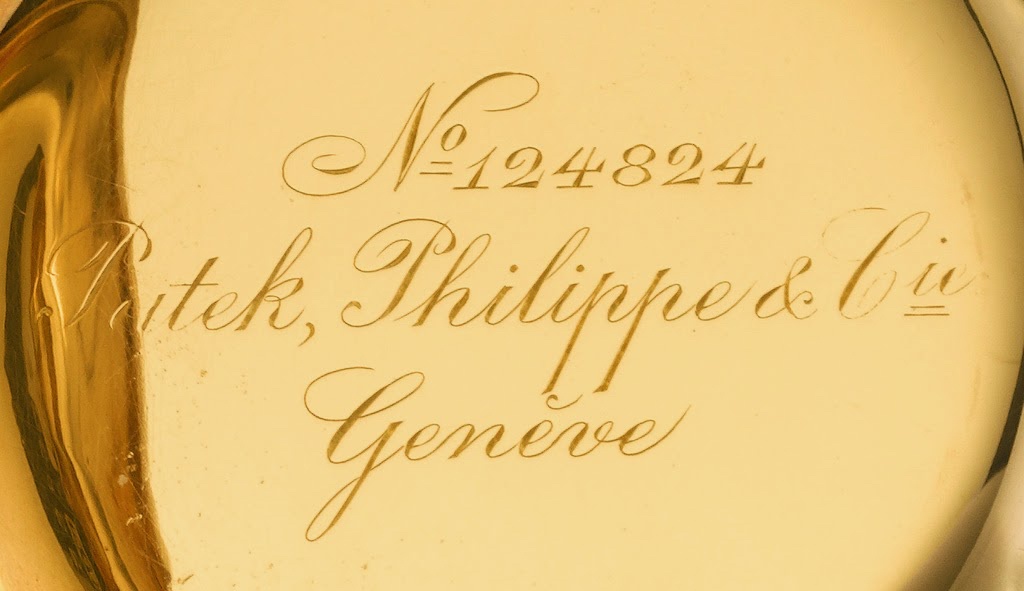 Nº 124824
Patek, Philippe & Cie
Genève